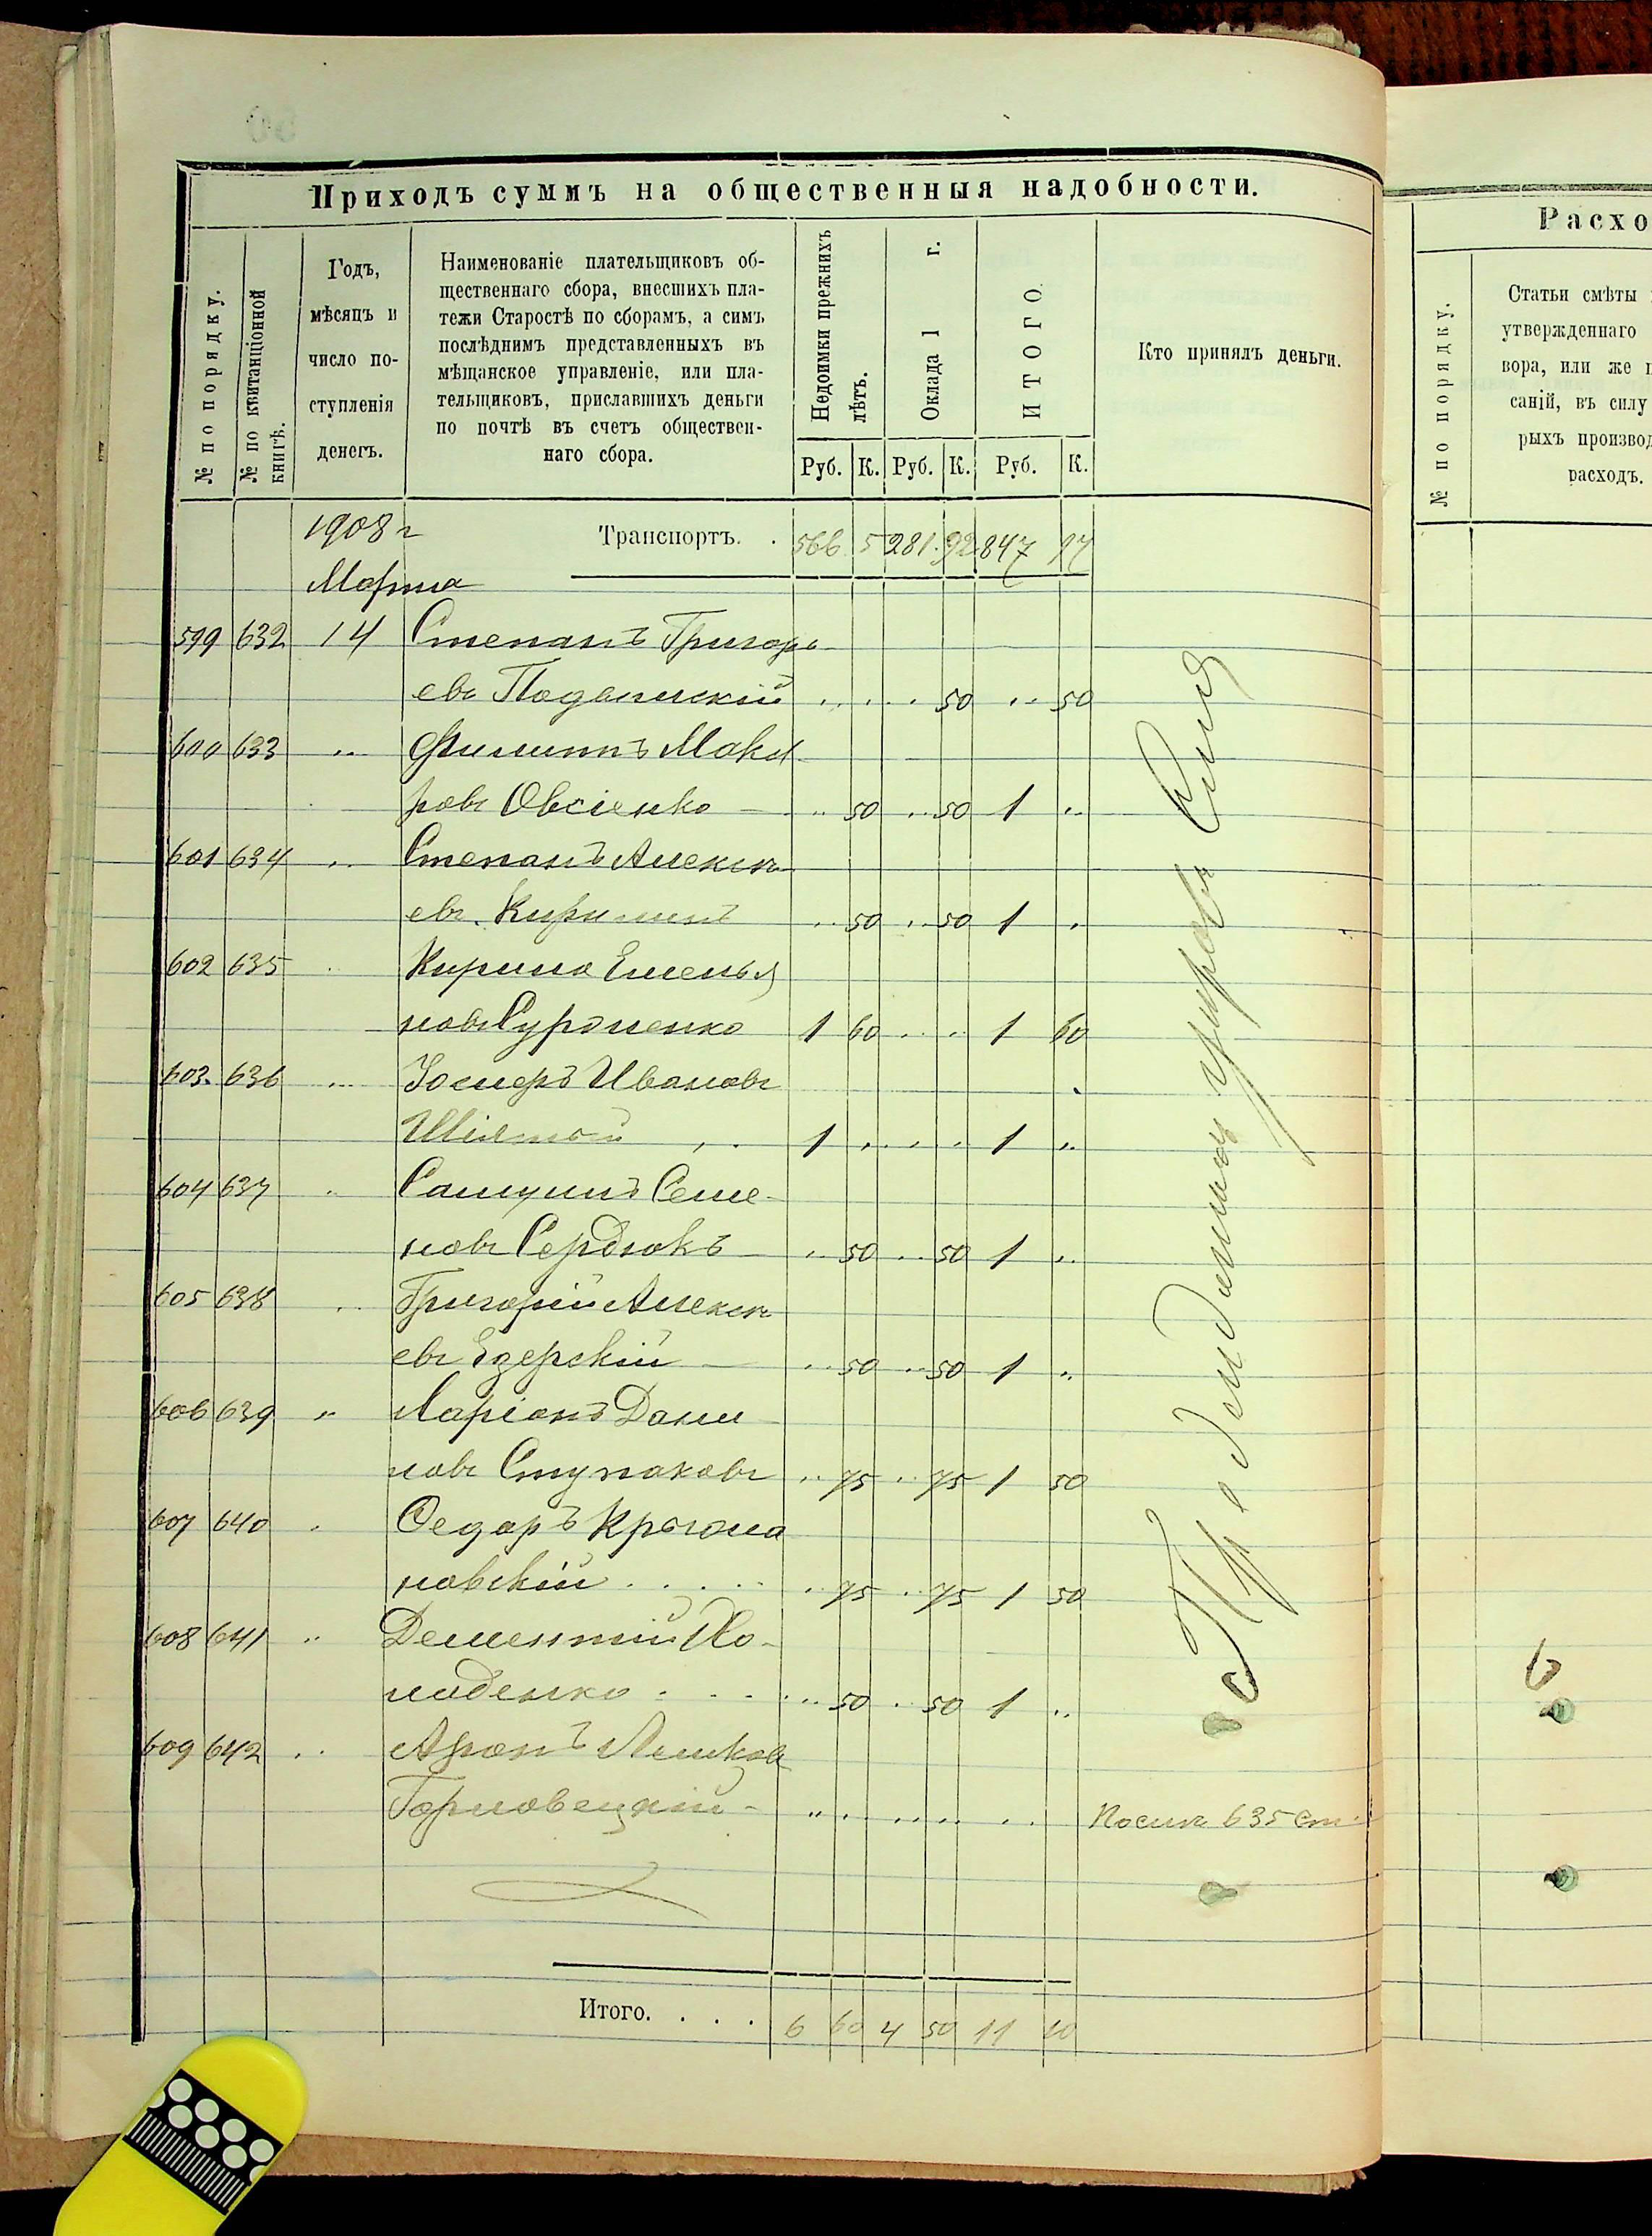 Приходъ суммъ на общественныя надобности.
№ по порядку.
№ по квитанціонной книгѣ.
Годъ,
мѣсяцъ и
число по-
ступленія
денегъ.
Наименованіе плательщиковъ об-
щественнаго сбора, внесшихъ пла-
тежи Старостѣ по сборамъ, а симъ
послѣднимъ представленныхъ въ
мѣщанское управленіе, или пла-
тельщиковъ, приславшихъ деньги
по почтѣ въ счетъ обществен-
наго сбора.
Недоимки прежнихъ лѣтъ.
Оклада 1 г.
ИТОГО
Кто принялъ деньги.
Руб. К. Руб. К. Руб. К.
1908 г Транспортъ. . 566 5 281. 92 847 97
Марта
599 632 14 Степанъ Григорь
евъ 50 50
600 633 Филиппъ Маки
ровъ Овсіенко 50 50 1
601 634 Степанъ Алексѣ
евъ Кирилинъ 50 50 1
602 635 Кирила Емелья
новъ 1 60 1 60
603. 636 Ивановъ
1 1
604 637 Самуилъ Семе-
новъ Сердюкъ 50 50 1
605 638 Григорій Алексѣ
евъ Езерскій 50 50 1
606 639 Ларіонъ Дани
ловъ Ступаковъ 75 75 1 50
607 640 Федоръ
новскій 75 75 1 50
608 641 Дементій Хо-
лоденко 50 50 1
609 642 Аронъ
635 ст.
Итого. . . . 6 60 4 50 11 10
Расхо
№ по порядку.
Статьи смѣты
утвержденнаго
вора, или же
саній, въ силу
рыхъ производ
расходъ.